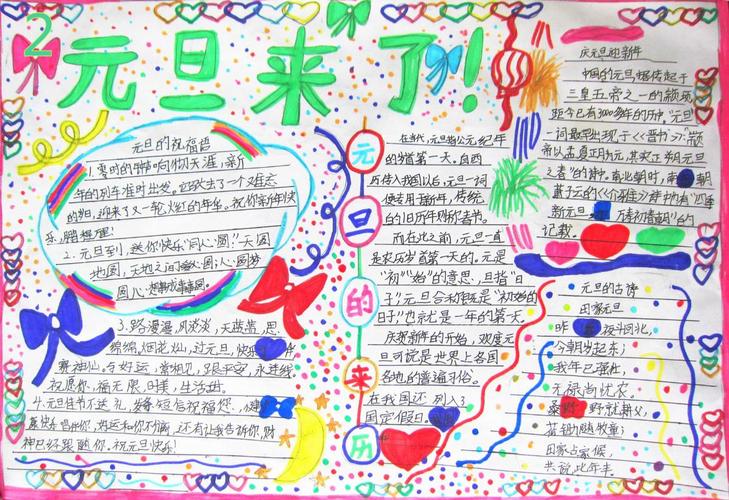 2
元旦来了!
元旦的祝福语
1.零时的钟声响彻天涯,新
年的列车准时出发。它驮走了一个难忘
的旧,迎来了又一轮火红的年华。祝你新年快
乐,
2.元旦到,送你快乐"同心圆":天圆
地圆,天地之间
圆心
3.路漫漫,风淡淡,天蓝蓝,思
绵绵,烟花灿,过元旦,快乐
赛神仙,
祝愿你,福无限,
4.元旦佳节不送礼,发条短信祝福您,
神已经跟随你。祝元旦快乐!
元旦的来历
在当代,元旦指公元纪年
的岁首第一天。自西
历传入我国以后,元旦一词
便专用于新年,传统
的旧历年则称春节。
而在此之前,元旦一直
是农历岁首第一天的。元是
"初""始"的意思,旦指"日
子"元旦合称既是"初始的
日子"也就是一年的第一天。
庆贺新年的开始,欢度元
旦可说是世界上各国
各地的普遍习俗。
在我国还列入3
国定假日。
庆元旦迎新年
中国的元旦,据传起于
三皇五帝之一的颛顼
距今已有3000多年的历史,"元旦"
一词最早出现于《晋书》:"颛
帝以孟夏正月为元,其实正朔元旦
之春"的诗中。南北朝时,南 朝
萧子云的《介雅》诗中也有"四年
新元旦, 万寿初春朝"的
记载。
元旦的古诗
田家元旦
昨 夜斗回北,
今朝岁起东;
我年已强仕,
无禄尚忧农。
桑 野就耕父,
荷锄随牧童;
田家占气候,
共说此年丰。